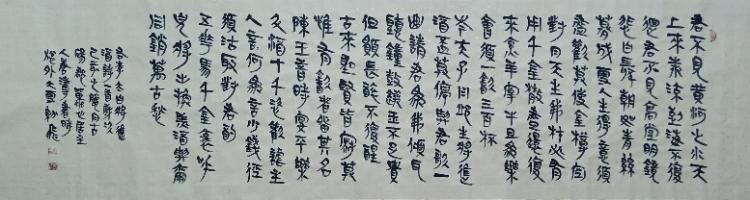 君不見黃河之水天
上來奔流到海不復
回君不見高堂明鏡
悲白髮朝如青絲
暮成雪人生得意須
盡歡莫使金樽空
對月天生我材必有
用千金散盡還復
來烹羊宰牛且為樂
會須一飲三百杯
岑夫子丹邱生將進
酒莫停與君歌一
曲請君為我傾耳
聽鐘鼓饌玉不足貴
但願長醉不復醒
古來聖賢皆寂寞
惟有飲者留其名
陳王昔時宴平樂
斗酒十千恣歡謔主
人何為言少錢徑
須沽取對君酌
五花馬千金裘呼
兒將出換美酒與爾
同銷萬古愁
右李太白將進
酒詩一首歲次